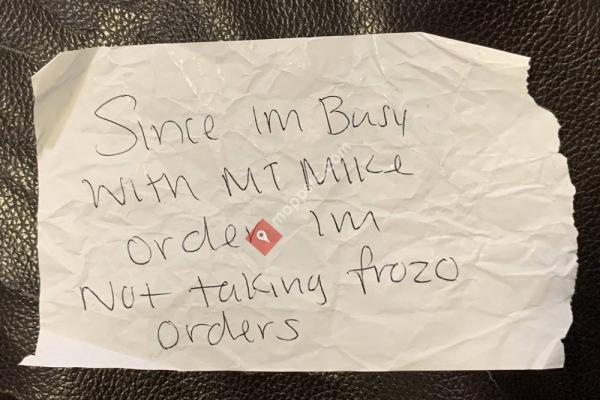 Since Im Busy
with MT Mike
order Im
Not taking frozo
orders